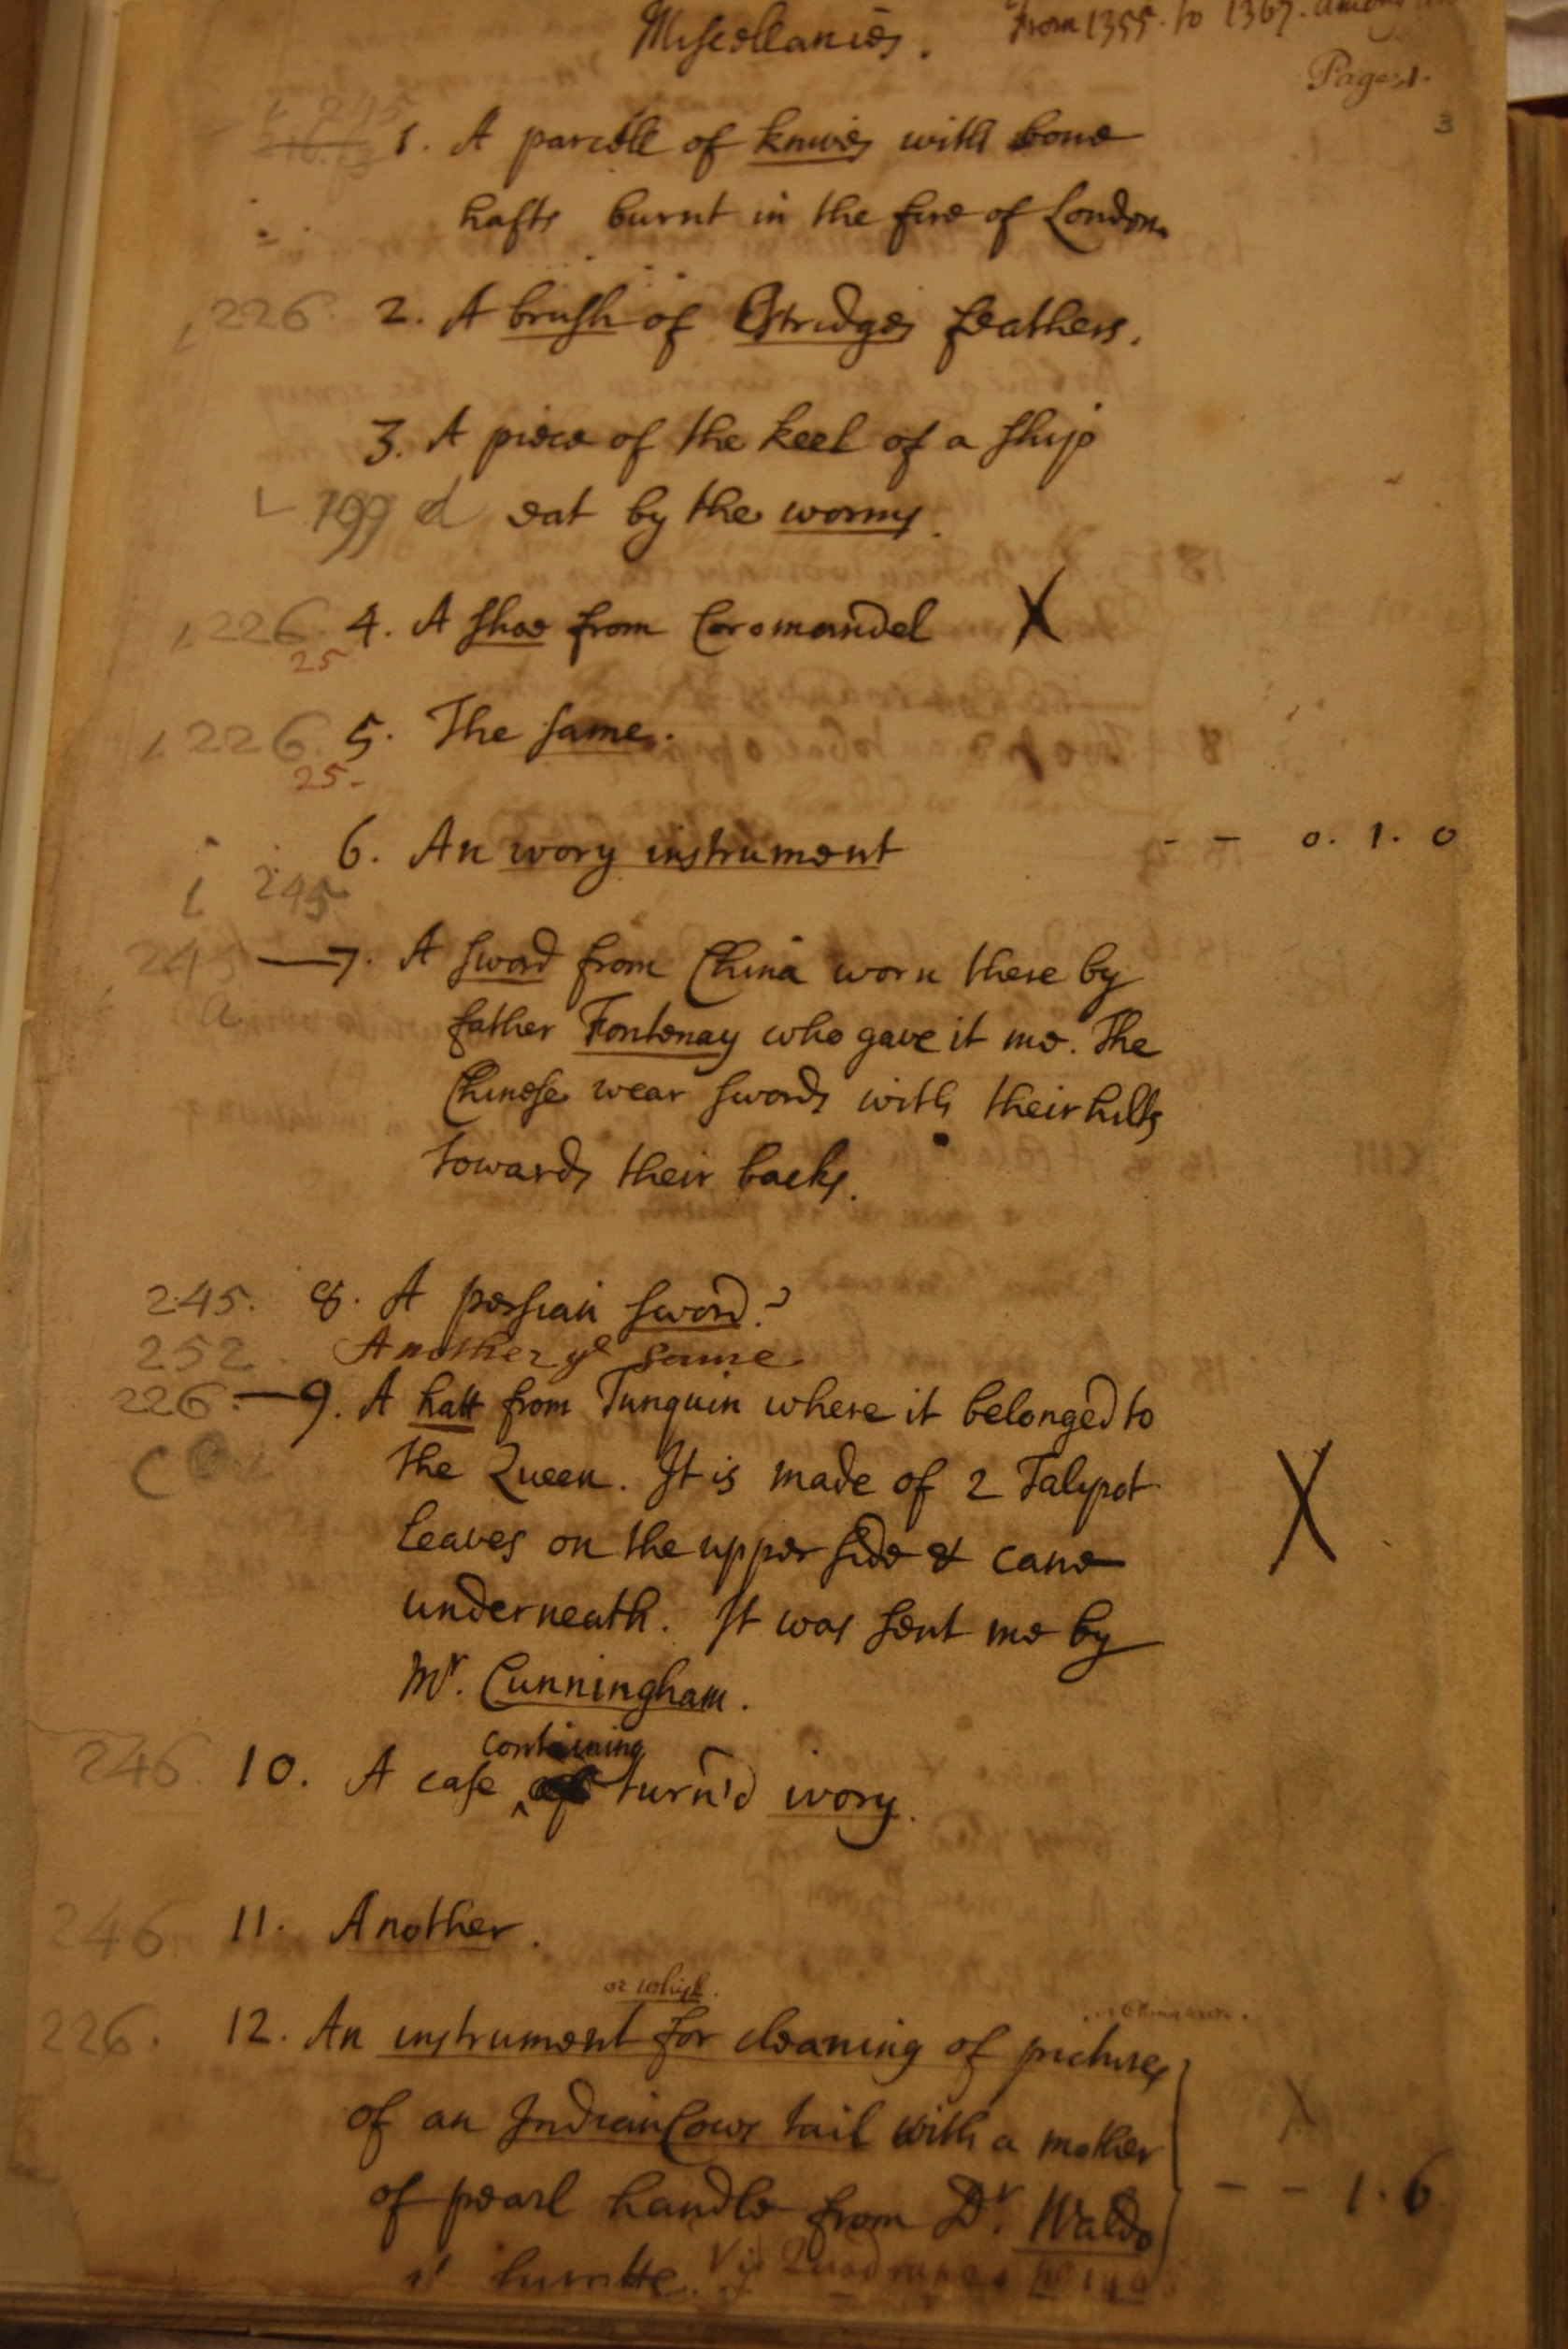 Miscellanies. from 1355. to 1367. among
Page. 1.
3
1. A parcell of knives with bone
hafts burnt in the fire of London.
226. 2. A brush of Estridges feathers.
3. A piece of the keel of a ship
199 d eat by the worms.
226. 4. A shoe from Coromandel X
25
226. 5. The same.
25.
6. An ivory instrument - - 0. 1. 0
245
245 — 7. A sword from China worn there by
a father Fontenay who gave it me. The
Chinese wear swords with their hilts
towards their backs.
245. 8. A persian sword.
252. Another ye same
226. — 9. A hatt from Tunquin where it belonged to
the Queen. It is made of 2 Talipot
leaves on the upper side & cane X
underneath. It was sent me by
Mr. Cunningham.
containing
246. 10. A case turn'd ivory.
246 11. Another.
or whisk.
226. 12. An instrument for cleaning of pictures
of an Indian Cows tail with a mother X
of pearl handle from Dr. Waldo - - 1. 6